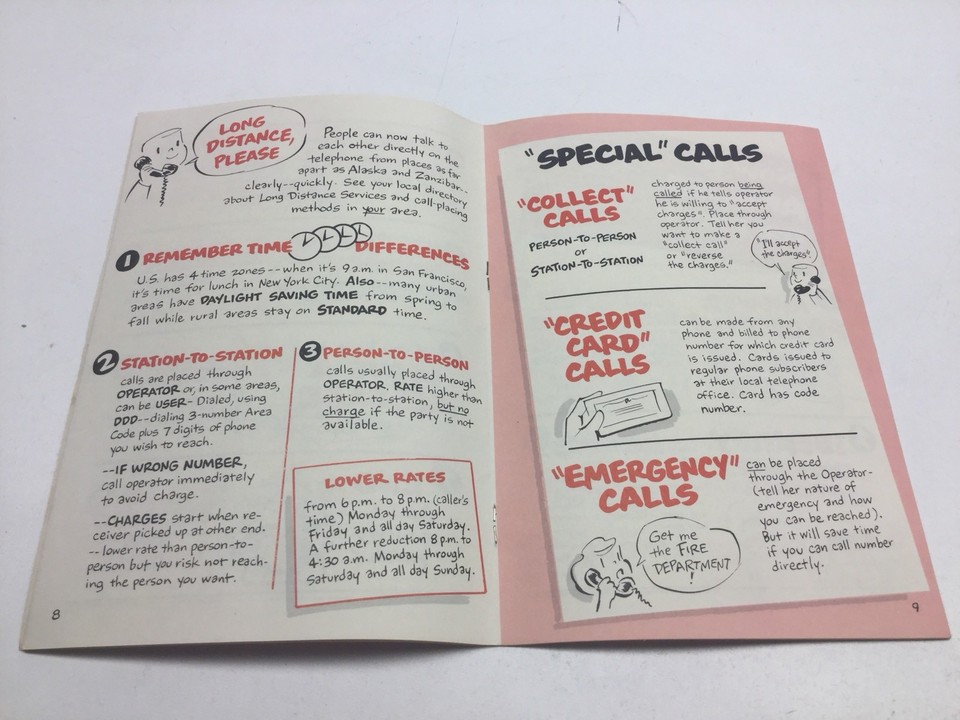 LONG
DISTANCE,
PLEASE
People can now talk to
each other directly on the
telephone from places as far
apart as Alaska and Zanzibar--
clearly--quickly. See your local directory
about Long Distance Services and call-placing
methods in your area.
1 REMEMBER TIME DIFFERENCES
U.S. has 4 time zones--when it's 9 a.m. in San Francisco,
it's time for lunch in New York City. Also--many urban
areas have DAYLIGHT SAVING TIME from spring to
fall while rural areas stay on STANDARD time.
2 STATION-TO-STATION
calls are placed through
OPERATOR or, in some areas,
can be USER- Dialed, using
DDD--dialing 3-number Area
Code plus 7 digits of phone
you wish to reach.
--IF WRONG NUMBER,
call operator immediately
to avoid charge.
--CHARGES start when re-
ceiver picked up at other end.
-- lower rate than person-to-
person but you risk not reach-
ing the person you want.
3 PERSON-TO-PERSON
calls usually placed through
OPERATOR. RATE higher than
station-to-station, but no
charge if the party is not
available.
LOWER RATES
from 6 p.m. to 8 p.m. (caller's
time) Monday through
Friday and all day Saturday.
A further reduction 8 p.m. to
4:30 a.m. Monday through
Saturday and all day Sunday.
8
"SPECIAL" CALLS
"COLLECT"
CALLS
PERSON-TO-PERSON
or
STATION-TO-STATION
charged to person being
called if he tells operator
he is willing to "accept
charges". Place through
operator. Tell her you
want to make a
"collect call"
or "reverse
the charges."
"I'll accept
the charges"
"CREDIT
CARD"
CALLS
can be made from any
phone and billed to phone
number for which credit card
is issued. Cards issued to
regular phone subscribers
at their local telephone
office. Card has code
number.
"EMERGENCY"
CALLS
can be placed
through the Operator-
(tell her nature of
emergency and how
you can be reached).
But it will save time
if you can call number
directly.
Get me
the FIRE
DEPARTMENT
!
9